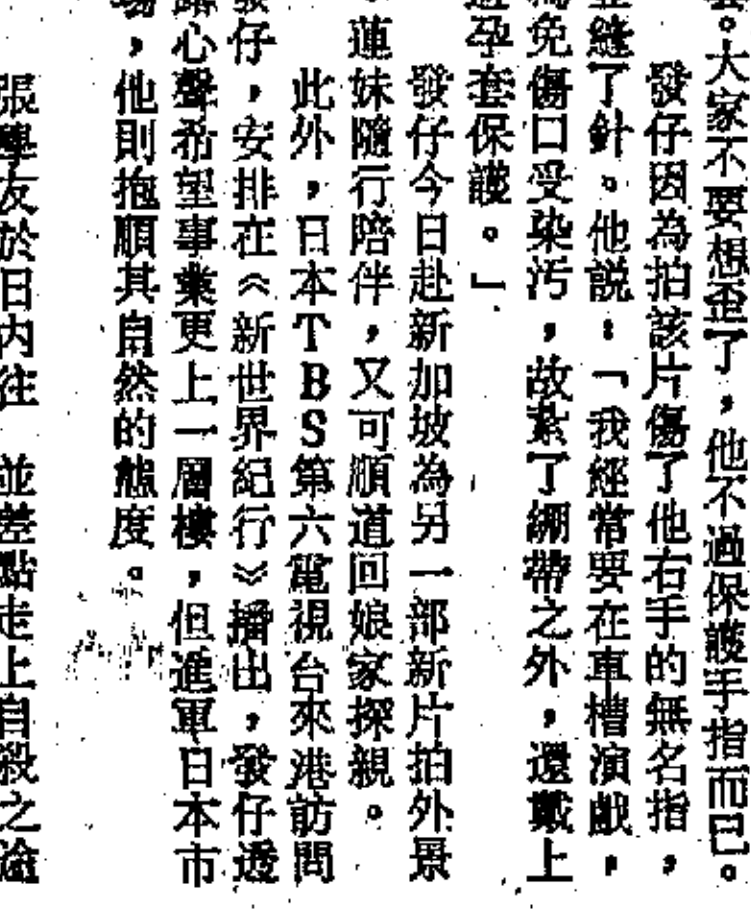 套。大家不要想歪了，他不過保護手指而已。
發仔因為拍該片傷了他右手的無名指，
並縫了針。他説：「我經常要在車槽演戲，
為免傷口受染污，故紮了綳帶之外，還戴上
避孕套保護。」
發仔今日赴新加坡為另一部新片拍外景
，蓮妹隨行陪伴，又可順道回娘家探親。
此外，日本TBS第六電視台來港訪問
發仔，安排在《新世界紀行》播出，發仔透
露心聲希望事業更上一層樓，但進軍日本市
場，他則抱順其自然的態度。
張學友於日内往 並差點走上自殺之途